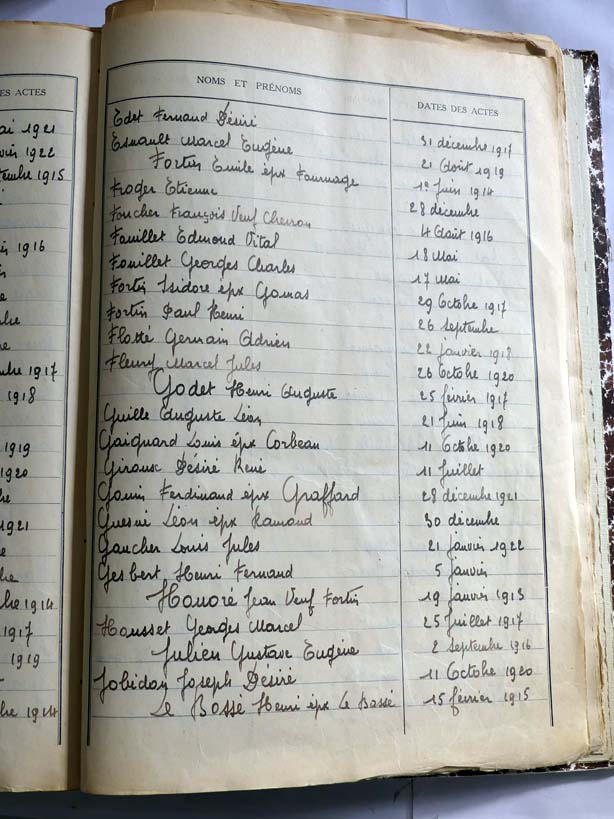 ES ACTES
ai 1921
1922
tembre 1915
1916
1917
1918
1919
1920
1921
1914
1917
1919
1914
NOMS ET PRÉNOMS DATES DES ACTES
Edet Fernand Désiré 31 décembre 1917
Esnault Marcel Eugène 21 Août 1919
Fortin Emile épx Fournage 1er Juin 1914
Froger Etienne 28 décembre
Foucher François Veuf 4 Août 1916
Fouillet Edmond Vital 18 Mai
Fouillet Georges Charles 17 Mai
Fortin Isidore épx Gomas 29 Octobre 1917
Fortin Paul Henri 26 Septembre
Flotté Germain Adrien 22 Janvier 1918
Fleury Marcel Jules 26 Octobre 1920
Godet Henri Auguste 25 février 1917
Guille Auguste Léon 21 Juin 1918
Gaignard Louis épx Corbeau 11 Octobre 1920
Giroux Désiré René 11 Juillet
Ferdinand épx Graffard 28 décembre 1921
Guesné Léon épx Ramond 30 décembre
Gaucher Louis Jules 21 Janvier 1922
Gesbert Henri Fernand 5 Janvier
Honoré Jean Veuf Fortin 19 Janvier 1913
Housset Georges Marcel 25 Juillet 1917
Julien Gustave Eugène 2 Septembre 1916
Jobidon Joseph Désiré 11 Octobre 1920
Le Bossé Henri épx Le Bassé 15 février 1915